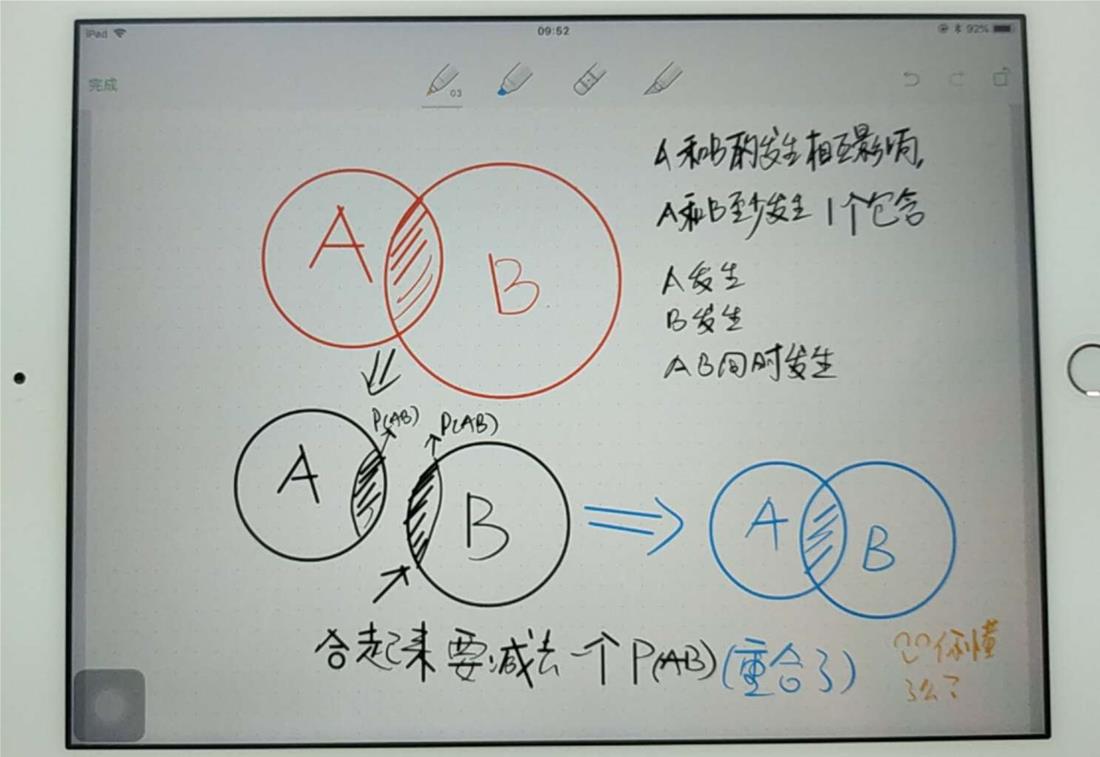 iPad
09:52
92%
完成
03
A和B的发生相互影响,
A和B至少发生1个包含
A发生
B发生
AB同时发生
A
B
P(AB)
P(AB)
A
B
A
B
合起来要减去一个P(AB)(重合了)
你懂
了么?